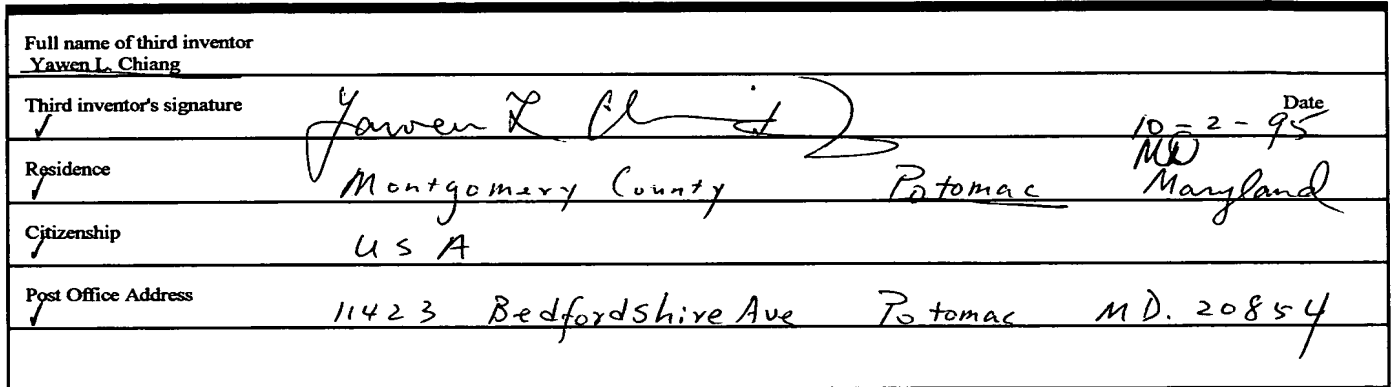 Full name of third inventor
Yawen L. Chiang
Third inventor's signature Yawen L Chiang Date
✓ 10-2-95
MD
Residence Montgomery County Potomac Maryland
✓
Citizenship USA
✓
Post Office Address 11423 Bedfordshire Ave Potomac MD. 20854
✓